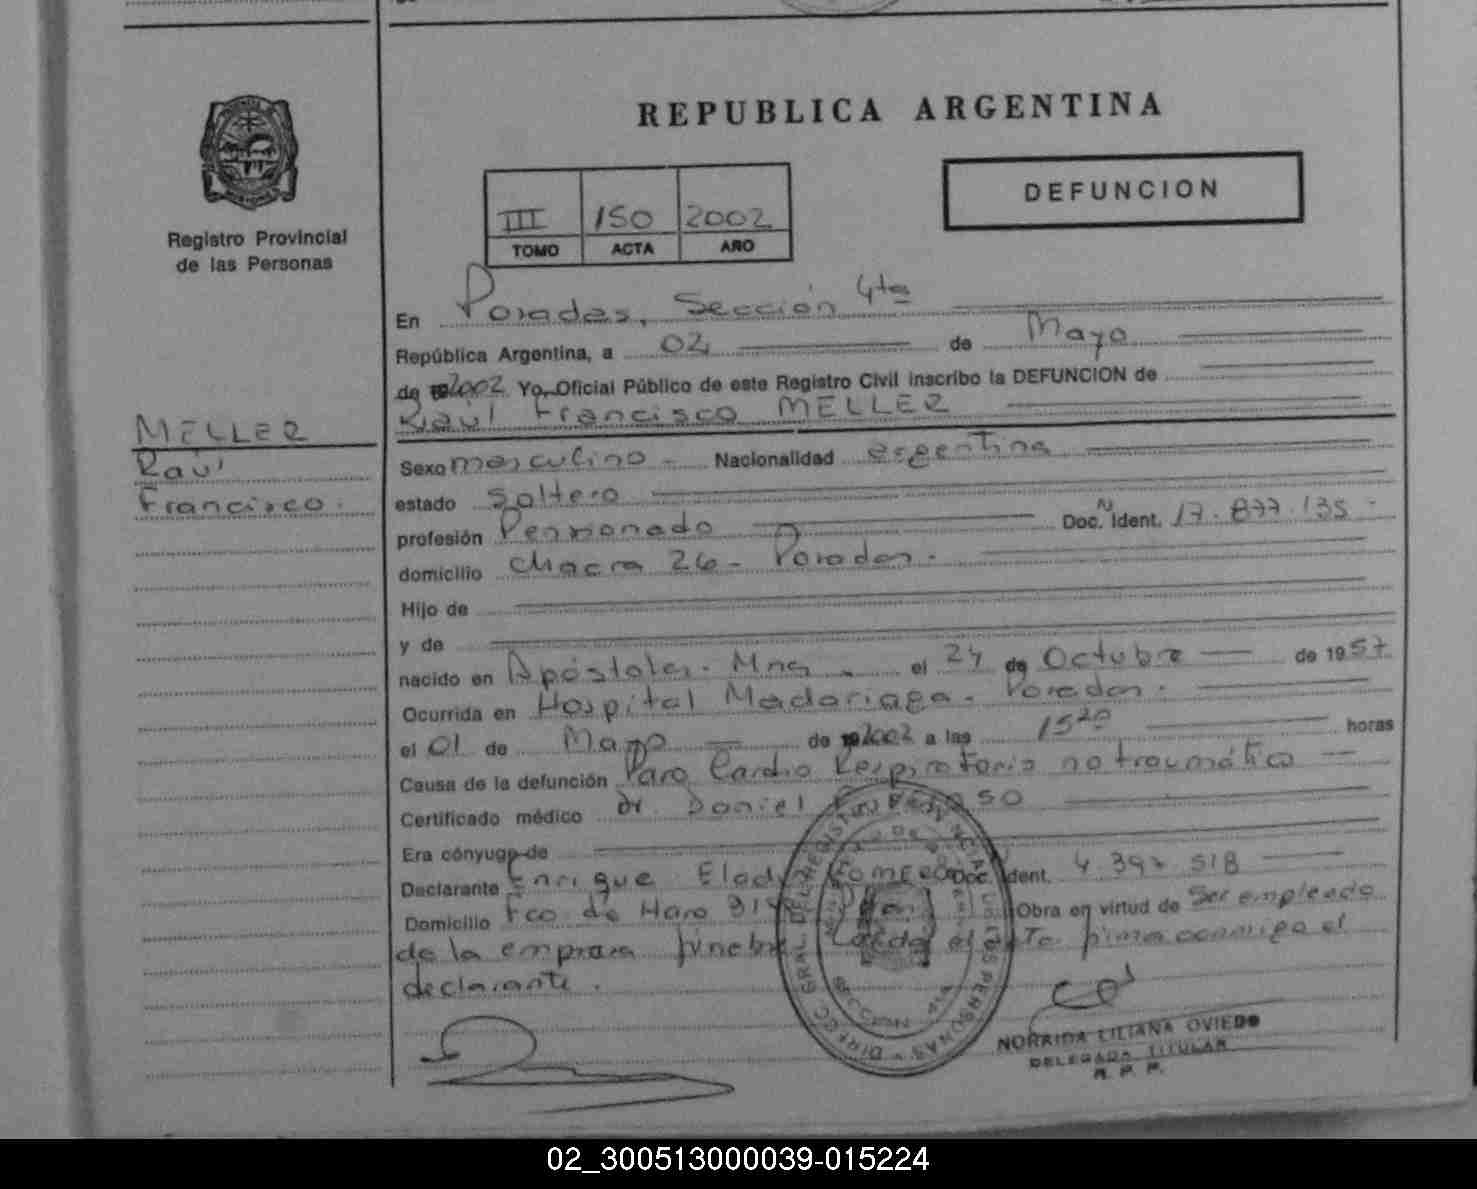 REPUBLICA ARGENTINA
DEFUNCION
III 150 2002
TOMO ACTA AÑO
Registro Provincial
de las Personas
En Posadas, Sección 4ta
República Argentina, a 02 de Mayo
de 2002 Yo, Oficial Público de este Registro Civil inscribo la DEFUNCION de
Raúl Francisco MELLER
MELLER
Raúl
Francisco.
Sexo masculino - Nacionalidad argentina
estado soltero
profesión Pensionado Doc. Ident. 17.877.135
domicilio Chacra 26 - Posadas.
Hijo de
y de
nacido en Apóstoles - Mnes el 24 de Octubre de 1957
Ocurrida en Hospital Madariaga - Posadas.
el 01 de Mayo de 2002 a las 15 20 horas
Causa de la defunción Paro Cardio Respiratorio no traumático
Certificado médico Dr. Daniel
Era cónyuge de
Declarante Enrique Eladio Romero Doc. Ident. 4.397.518
Domicilio Fco. de Haro Obra en virtud de Ser empleado
de la empresa fúnebre. Leída el acta firma conmigo el
declarante.
NORRIDA LILIANA OVIEDO
DELEGADA TITULAR
R. P. P.
02_300513000039-015224